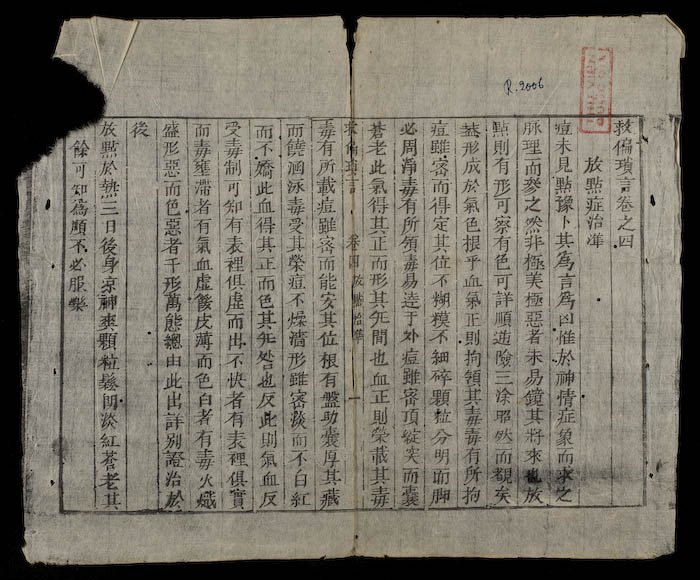 R.2006
救偏瑣言卷之四
放點症治準
痘未見點豫卜其為言為凶惟於神情症象而求之
脉理而叅之然非極美極惡者未易鏡其將來也放
點則有形可察有色可詳順逆險三塗昭然而覩矣
葢形成於氣色根乎血氣正則拘領其毒毒有所拘
痘雖密而得定其位不糊模不細碎顆粒分明而脚
必周淨毒有所領毒易逵于外痘雖密頂綻突而囊
蒼老此氣得其正而形其无間也血正則榮載其毒
救偏瑣言 卷四 放點治準 一
毒有所載痘雖密而能安其位根有盤助囊厚其藏
而饒涵泳毒受其榮痘不燥濇形雖密淡而不白紅
而不嬌此血得其正而色其无咎也反此則氣血反
受毒制可知有表裡俱虛而出不快者有表裡俱實
而毒壅滯者有氣血虛餒皮薄而色白者有毒火熾
盛形惡而色惡者千形萬態總由此出詳别證治於
後
放點於熱三日後身凉神爽顆粒鬆朗淡紅蒼老其
餘可知為順不必服藥